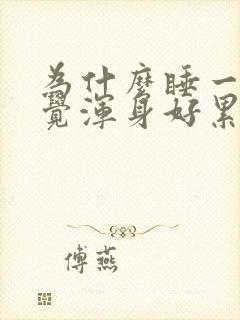 为什麽睡一
覺渾身好累
傅燕